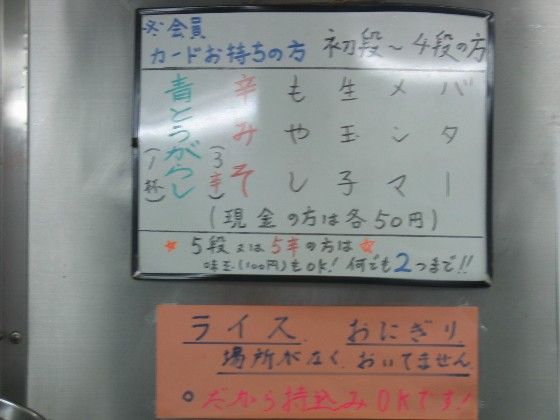 ※会員
カードお持ちの方 初段〜4段の方
バター
メンマ
生玉子
もやし
辛みそ
(3辛)
青とうがらし
(1杯)
(現金の方は各50円)
★5段又は5辛の方は★
味玉(100円)もOK!何でも2つまで!!
ライス おにぎり
場所がなく おいてません
○だから持込みOKです!